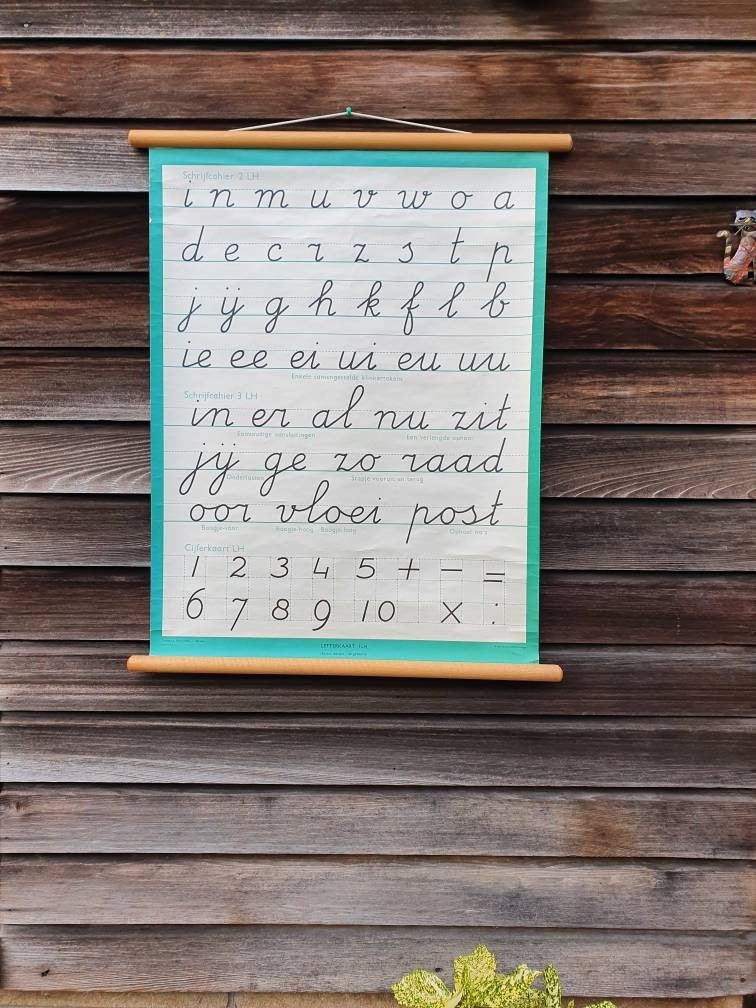 Schrijfcahier 2 LH
i n m u v w o a
d e c r z s t p
j ij g h k f l b
ie ee ei ui eu uu
Enkele samengestelde klinkertekens
Schrijfcahier 3 LH
in er al nu zit
Eenvoudige aansluitingen Een verlengde ophaal
jij ge zo raad
Stapje vooruit en terug
oor vloei post
Boogje-hoog Boogje-laag
Cijferkaart LH
1 2 3 4 5 + - =
6 7 8 9 10 x :
LETTERKAART 1LH